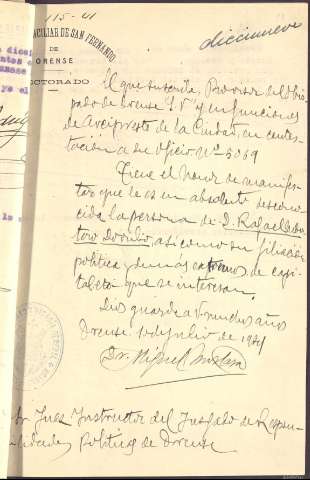 115-41
diecinueve
CILIAR DE SAN FERNANDO
DE
ORENSE
CTORADO
El que suscribe, Provisor del Obis
pado de Orense S. P. y en funciones
de Arcipreste de la Ciudad, en contes
tación a su oficio Nº 5069
Tiene el honor de manifes
tar que le es en absoluto descono
cida la persona de D. Rafael
así como su filiación
política y demás extremos de
que se interesan.
Dios guarde a V. muchos años
Orense, 10 de Julio de 1941
Dr. Miguel
Sr. Juez Instructor del Juzgado de Respon
sabilidades Políticas de Orense